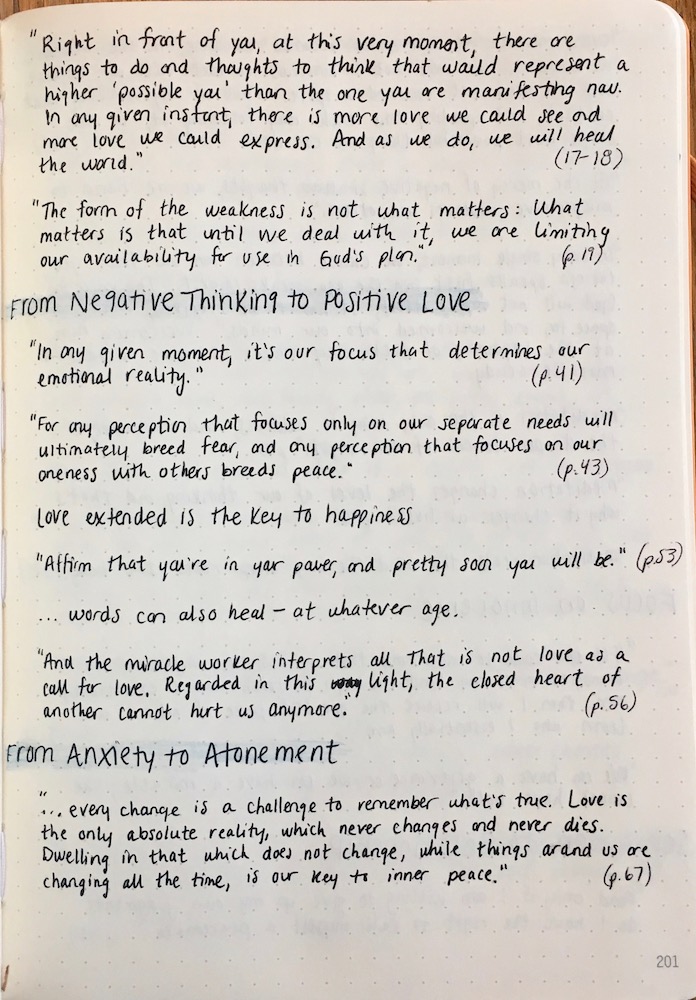 "Right in front of you, at this very moment, there are
things to do and thoughts to think that would represent a
higher 'possible you' than the one you are manifesting now.
In any given instant, there is more love we could see and
more love we could express. And as we do, we will heal
the world." (17-18)
"The form of the weakness is not what matters: What
matters is that until we deal with it, we are limiting
our availability for use in God's plan." (p.19)
From Negative Thinking to Positive Love
"In any given moment, it's our focus that determines our
emotional reality." (p.41)
"For any perception that focuses only on our separate needs will
ultimately breed fear, and any perception that focuses on our
oneness with others breeds peace." (p.43)
Love extended is the key to happiness
"Affirm that you're in your power, and pretty soon you will be." (p.53)
... words can also heal – at whatever age.
"And the miracle worker interprets all that is not love as a
call for love. Regarded in this light, the closed heart of
another cannot hurt us anymore." (p.56)
From Anxiety to Atonement
"... every change is a challenge to remember what's true. Love is
the only absolute reality, which never changes and never dies.
Dwelling in that which does not change, while things around us are
changing all the time, is our key to inner peace." (p.67)
201